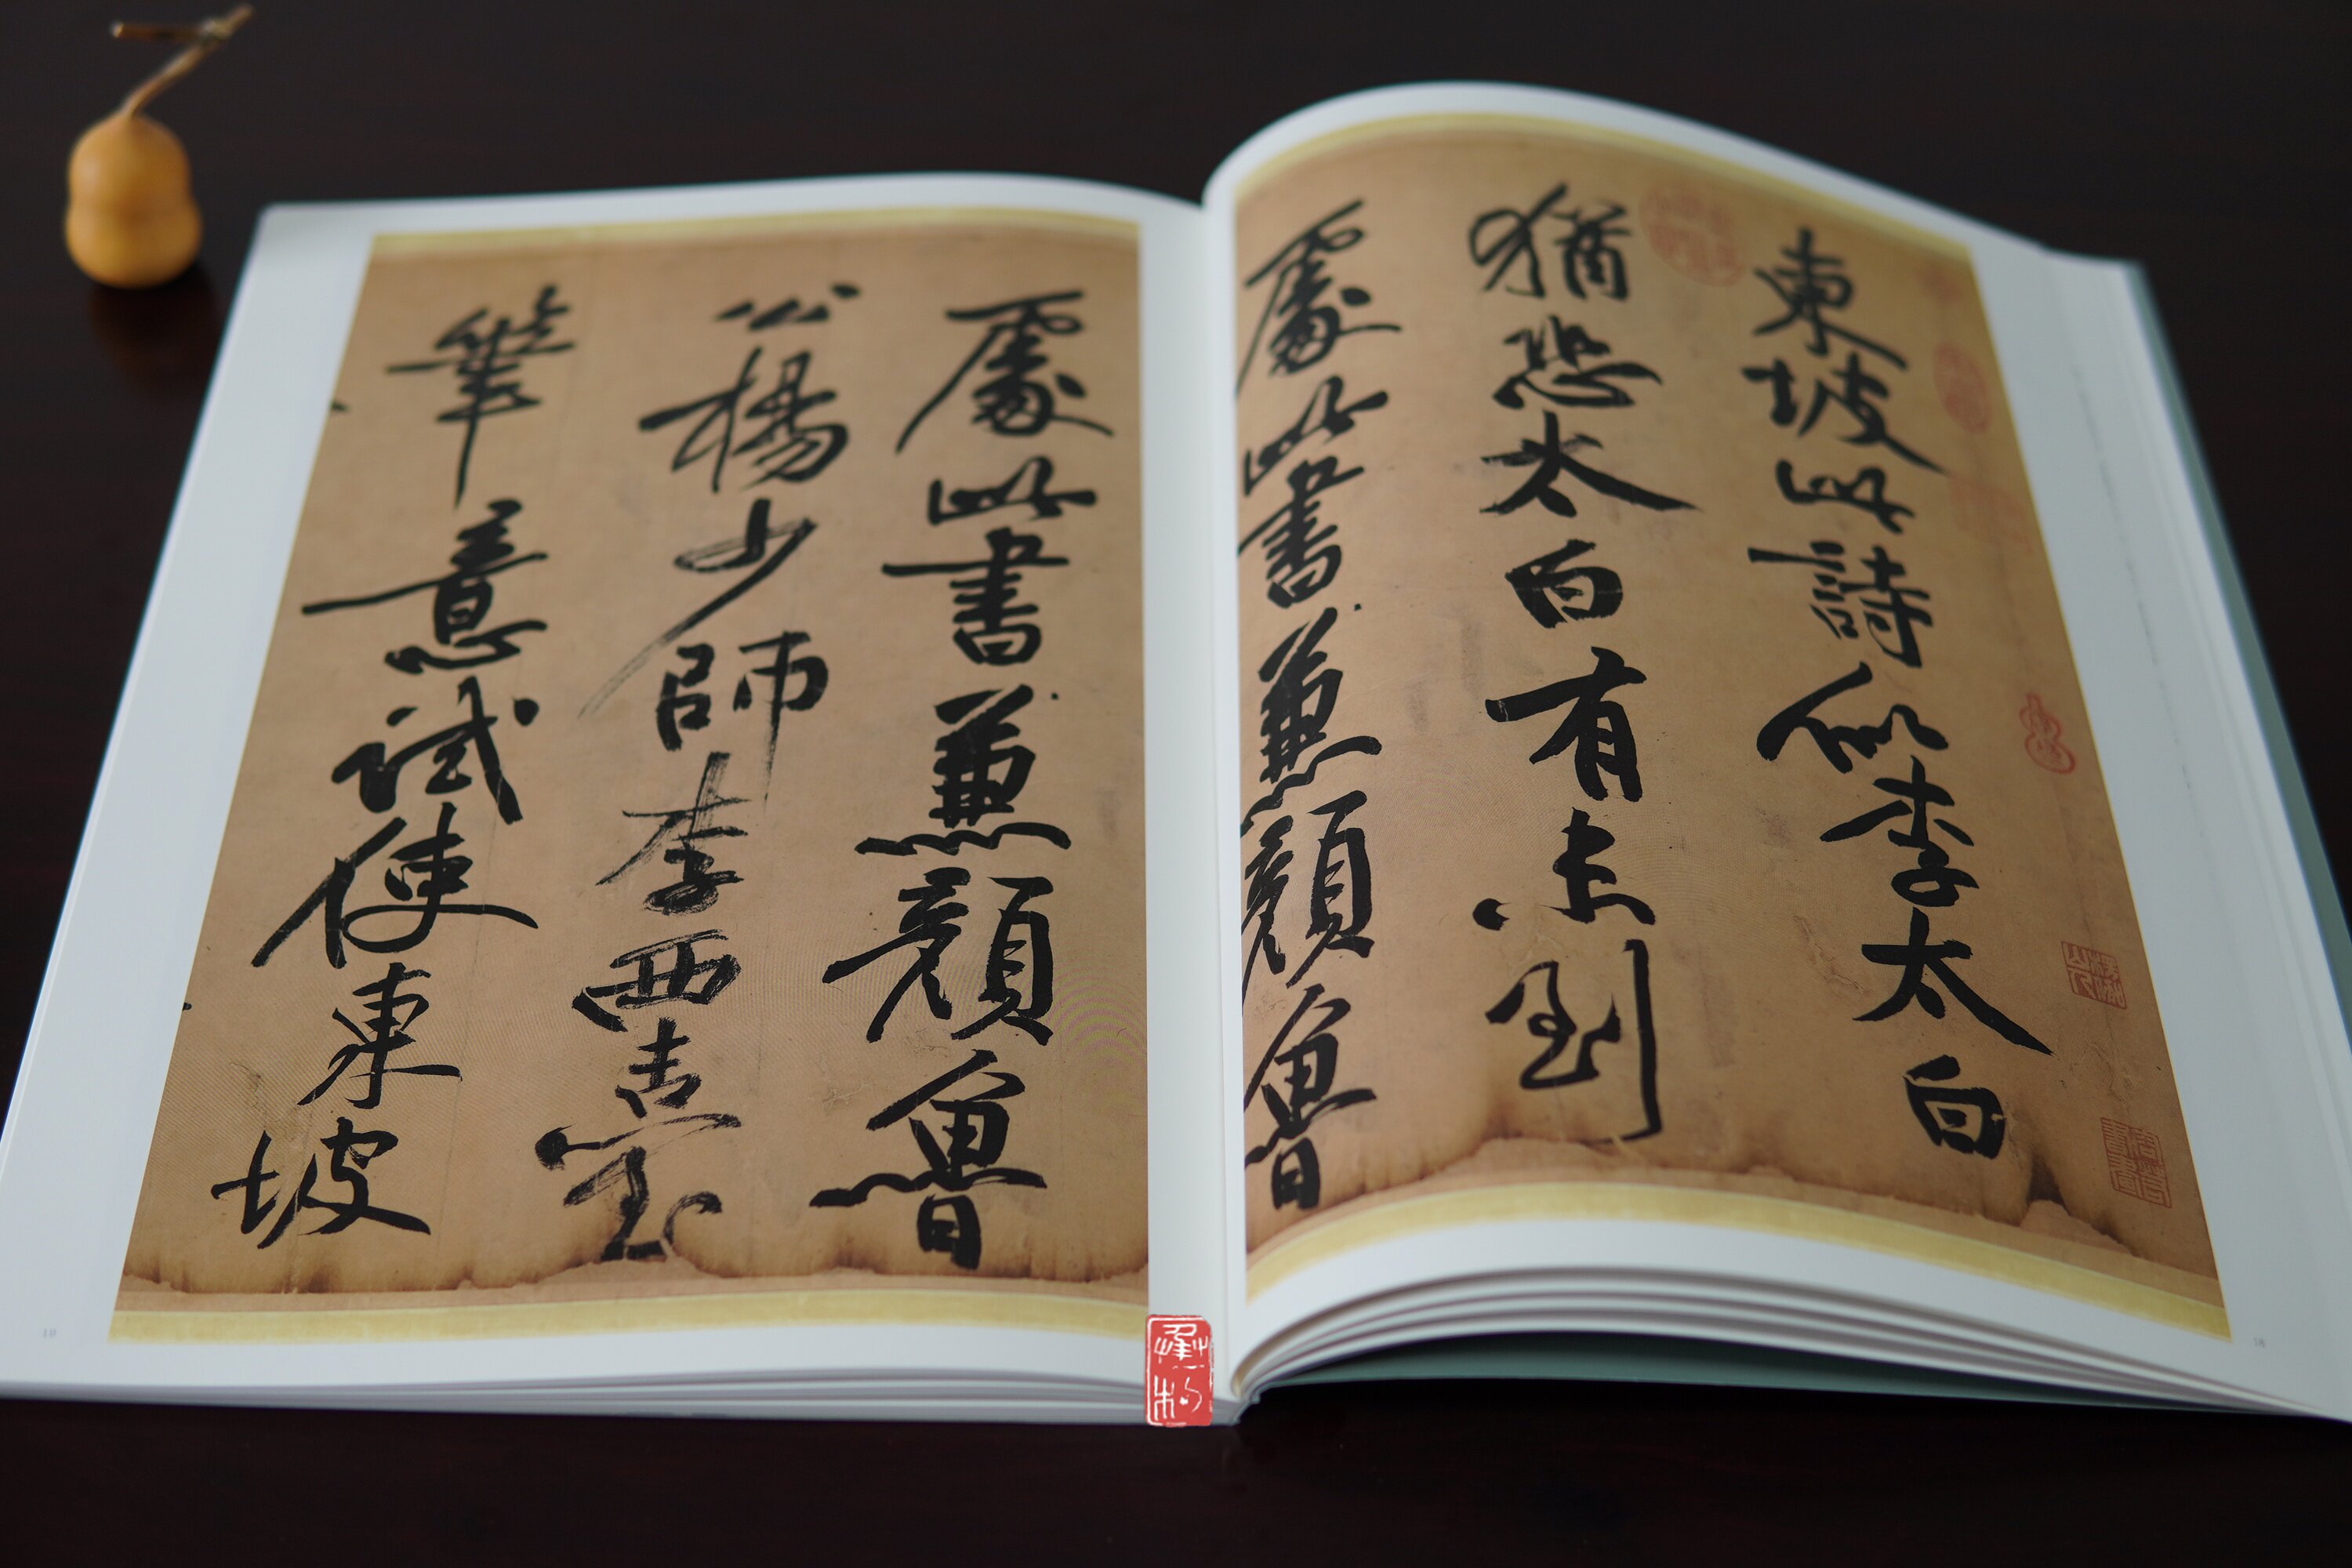 東坡此詩似李太白
猶恐太白有未到
處此書兼顔魯
處此書兼顔魯
公楊少師李西臺
筆意試使東坡
18
19